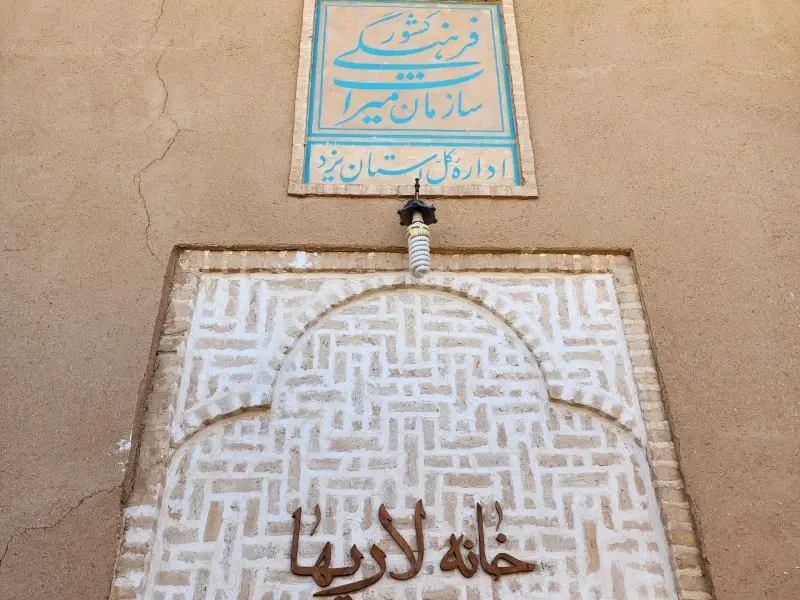 سازمان میراث
فرهنگی کشور
اداره کل استان یزد
خانه لاریها